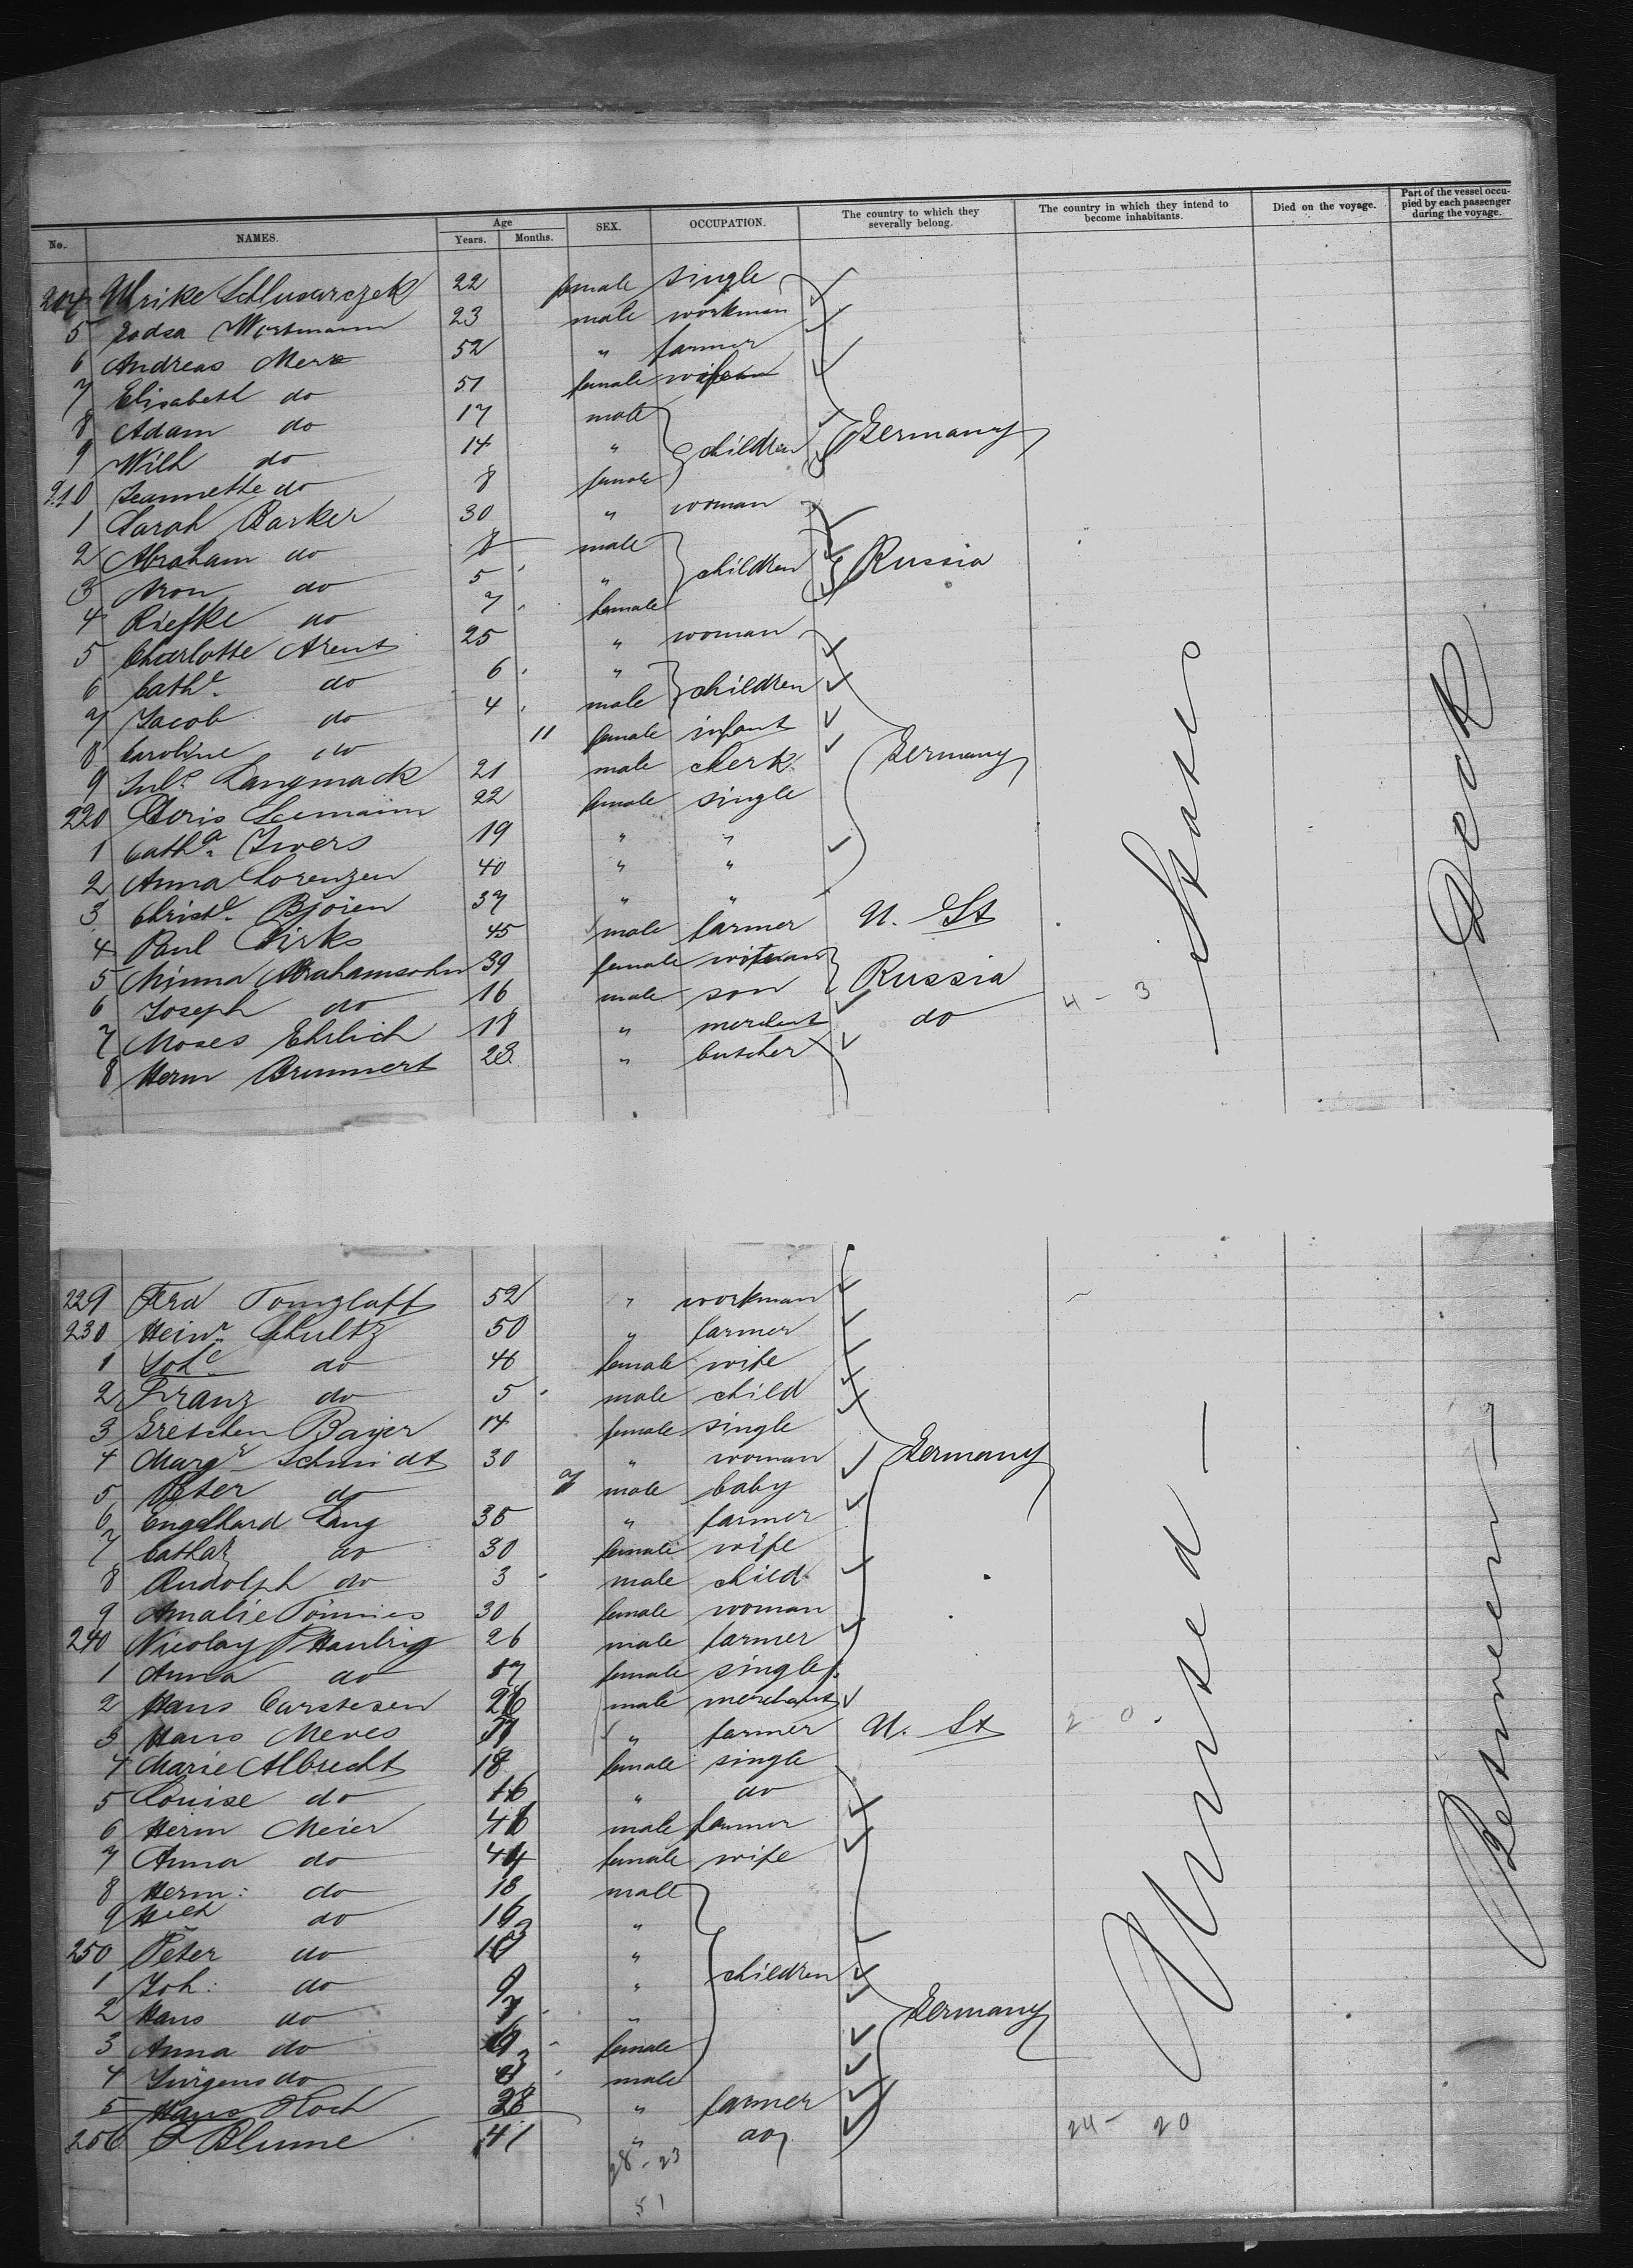 No. NAMES. Age Years. Months. SEX. OCCUPATION. The country to which they severally belong. The country in which they intend to become inhabitants. Died on the voyage. Part of the vessel occupied by each passenger during the voyage.
204 Ulrike Schlusarczek 22 female single
5 Wortmann 23 male workman
6 Andreas Merz 52 " farmer
7 Elisabeth do 51 female wife
8 Adam do 17 male
9 Wilh do 14 " children Germany
210 Jeannette do 8 female
1 Sarah Barker 30 " woman
2 Abraham do 8 male
3 Aron do 5 " children Russia
4 Riefke do 7 female
5 Charlotte Arent 25 " woman
6 Cathe do 6 "
7 Jacob do 4 male children
8 Caroline do 11 female infant
9 Juls Langmack 21 male clerk Germany
220 Doris Lemann 22 female single
1 Catha Iwers 19 " "
2 Anna Lorenzen 40 " "
3 Christe Bjoien 37 " "
4 Paul Dirks 45 male farmer U. St
5 Minna Abrahamsohn 39 female wife
6 Joseph do 16 male son Russia
7 Moses Ehrlich 18 " merchant do 4 - 3
8 Herm Brummert 23 " butcher
229 Ferd Tomzlaff 52 " workman
230 Heinr Schultz 50 " farmer
1 Johe do 46 female wife
2 Franz do 5 male child
3 Gretchen Bayer 14 female single
4 Margr Schmidt 30 " woman Germany
5 Peter do 7 male baby
6 Engelhard Lang 35 " farmer
7 Cathar do 30 female wife
8 Rudolph do 3 male child
9 Amalie Tönnies 30 female woman
240 Nicolay P Haubrig 26 male farmer
1 Anna do 17 female single
2 Hans Carstesen 26 male merchant
3 Hans Meves 31 " farmer U. St 2 0
4 Marie Albrecht 18 female single
5 Louise do 16 " do
6 Herm Meier 46 male farmer
7 Anna do 44 female wife
8 Herm: do 18 male
9 do 16 "
250 Peter do 13 "
1 Joh: do 9 " children
2 Hans do 7 " Germany
3 Anna do 6 female
4 Jürgens do 3 male
5 Hans Koch 38 " farmer
256 Blume 41 " do 24 - 20
28 - 23
51
United States
Between Deck